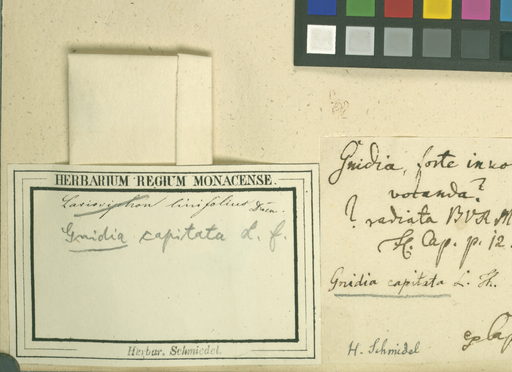 HERBARIUM REGIUM MONACENSE.
Lasiosiphon linifolius Dcne.
Gnidia capitata L. f.
Herbar. Schmiedel.
Gnidia, forte
vocanda?
? radiata
H. Cap. p. 12.
Gnidia capitata L. fil.
H. Schmidel